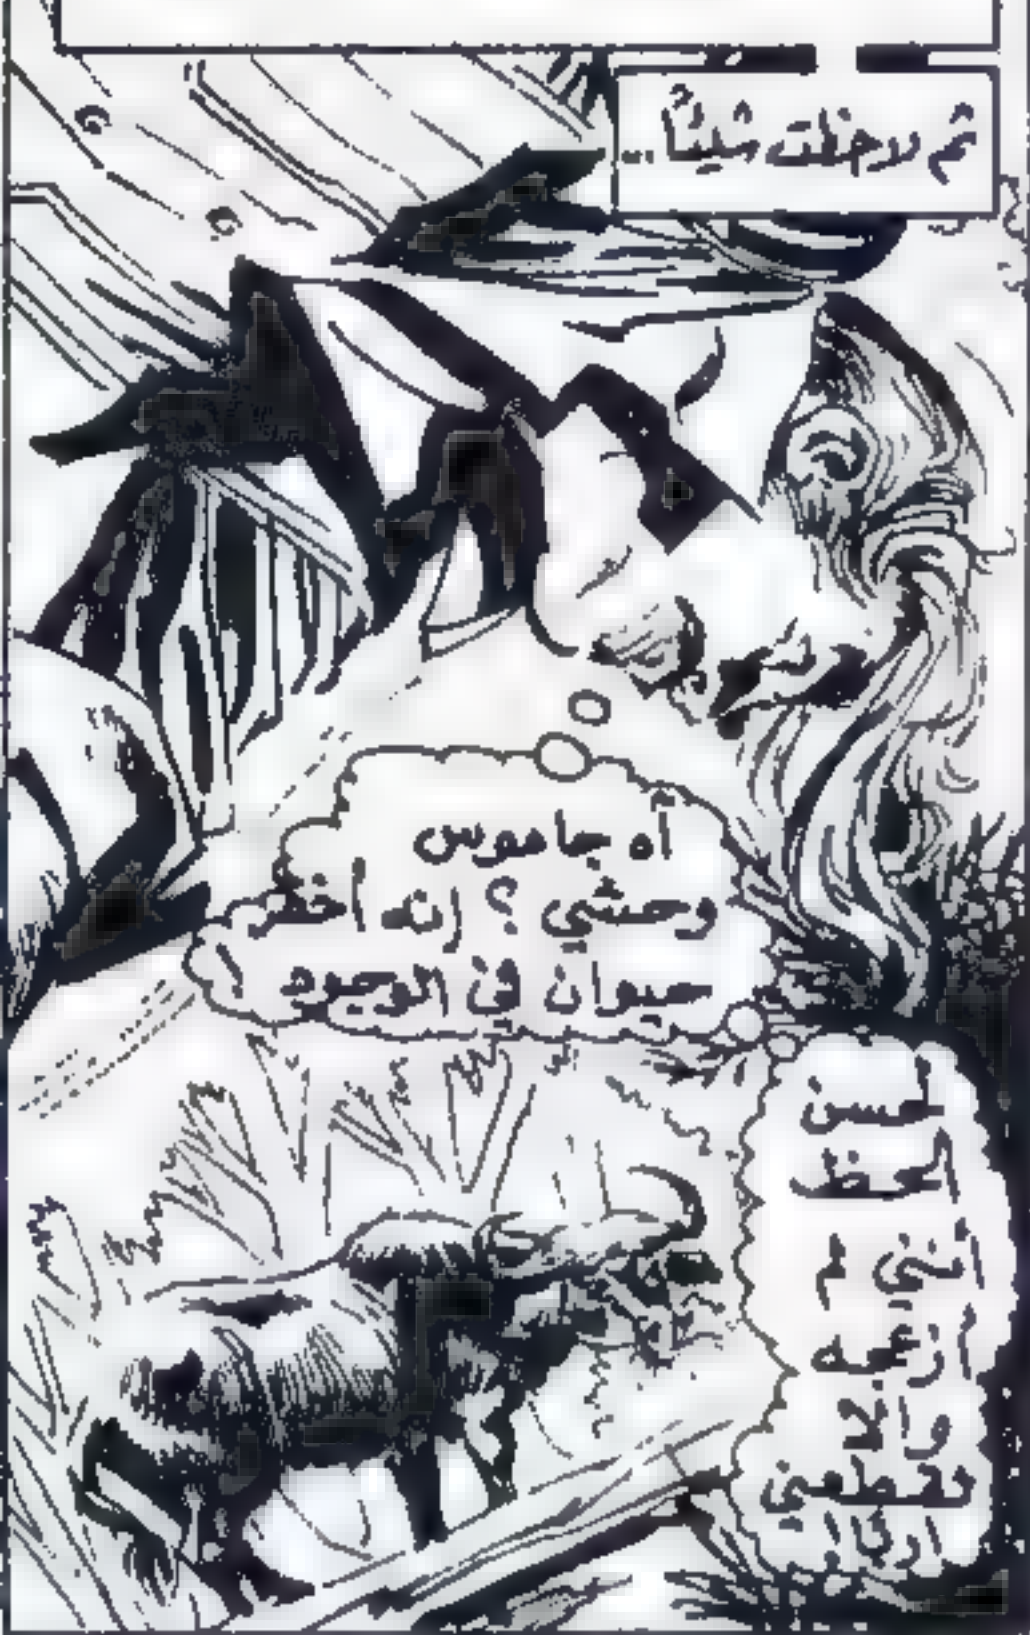 ثم لاحظت شيئاً...
آه جاموس
وحشي ؟ إنه أخطر
حيوان في الوجود !
لحسن
الحظ
أنني لم
أزعجه
وإلا
لقطعني
إرباً !